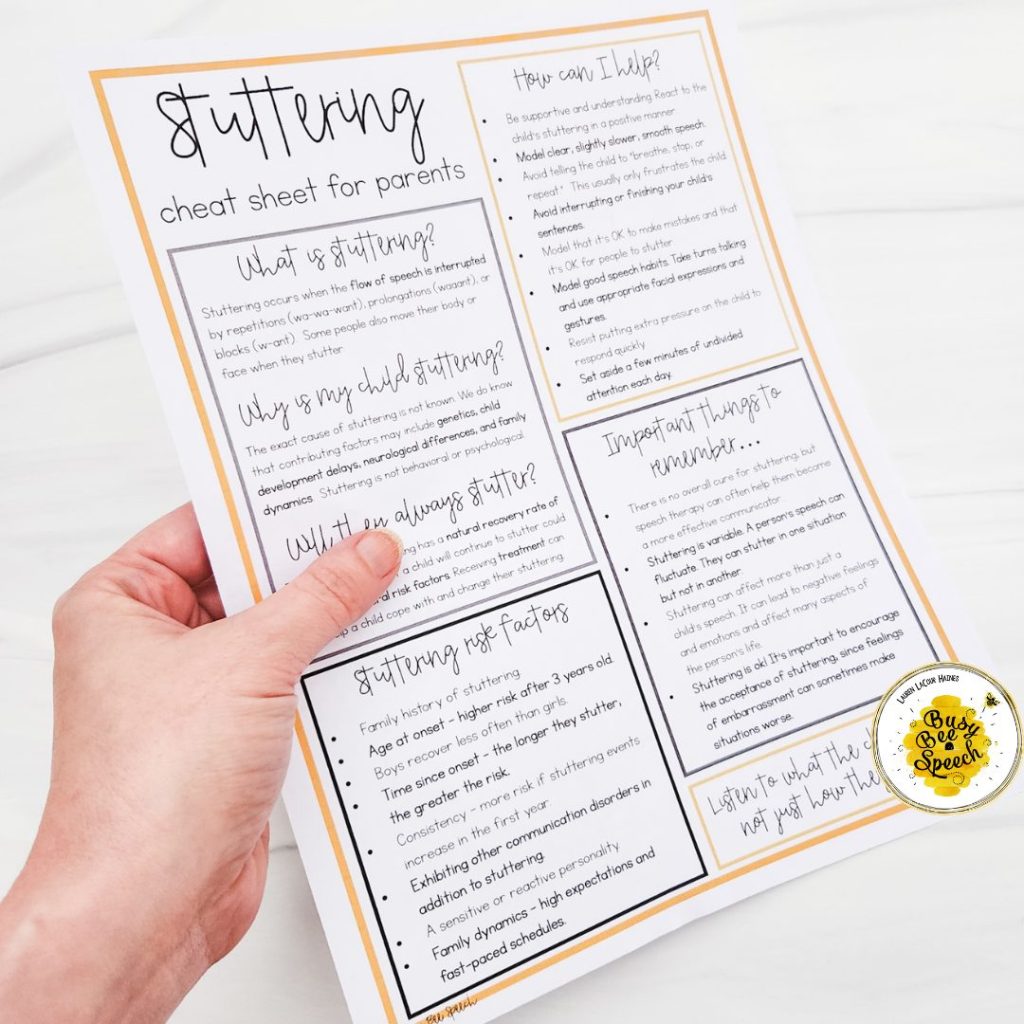 stuttering
cheat sheet for parents
What is stuttering?
Stuttering occurs when the flow of speech is interrupted
by repetitions (wa-wa-want), prolongations (waaant), or
blocks (w-ant). Some people also move their body or
face when they stutter.
Why is my child stuttering?
The exact cause of stuttering is not known. We do know
that contributing factors may include genetics, child
development delays, neurological differences, and family
dynamics. Stuttering is not behavioral or psychological.
Will they always stutter?
has a natural recovery rate of
a child will continue to stutter could
risk factors. Receiving treatment can
a child cope with and change their stuttering.
Stuttering risk factors
• Family history of stuttering.
• Age at onset - higher risk after 3 years old.
• Boys recover less often than girls.
• Time since onset - the longer they stutter,
the greater the risk.
• Consistency - more risk if stuttering events
increase in the first year.
• Exhibiting other communication disorders in
addition to stuttering.
• A sensitive or reactive personality
• Family dynamics - high expectations and
fast-paced schedules.
Bee Speech
How can I help?
• Be supportive and understanding. React to the
child's stuttering in a positive manner.
• Model clear, slightly slower, smooth speech.
• Avoid telling the child to "breathe, stop, or
repeat." This usually only frustrates the child.
• Avoid interrupting or finishing your child's
sentences.
• Model that it's OK to make mistakes and that
it's OK for people to stutter.
• Model good speech habits. Take turns talking
and use appropriate facial expressions and
gestures.
• Resist putting extra pressure on the child to
respond quickly.
• Set aside a few minutes of undivided
attention each day.
Important things to
remember...
• There is no overall cure for stuttering, but
speech therapy can often help them become
a more effective communicator.
• Stuttering is variable. A person's speech can
fluctuate. They can stutter in one situation
but not in another.
• Stuttering can affect more than just a
child's speech. It can lead to negative feelings
and emotions and affect many aspects of
the person's life.
• Stuttering is ok! It's important to encourage
the acceptance of stuttering, since feelings
of embarrassment can sometimes make
situations worse.
Listen to what the
not just how the
Lauren LaCour Haines
Busy
Bee
Speech